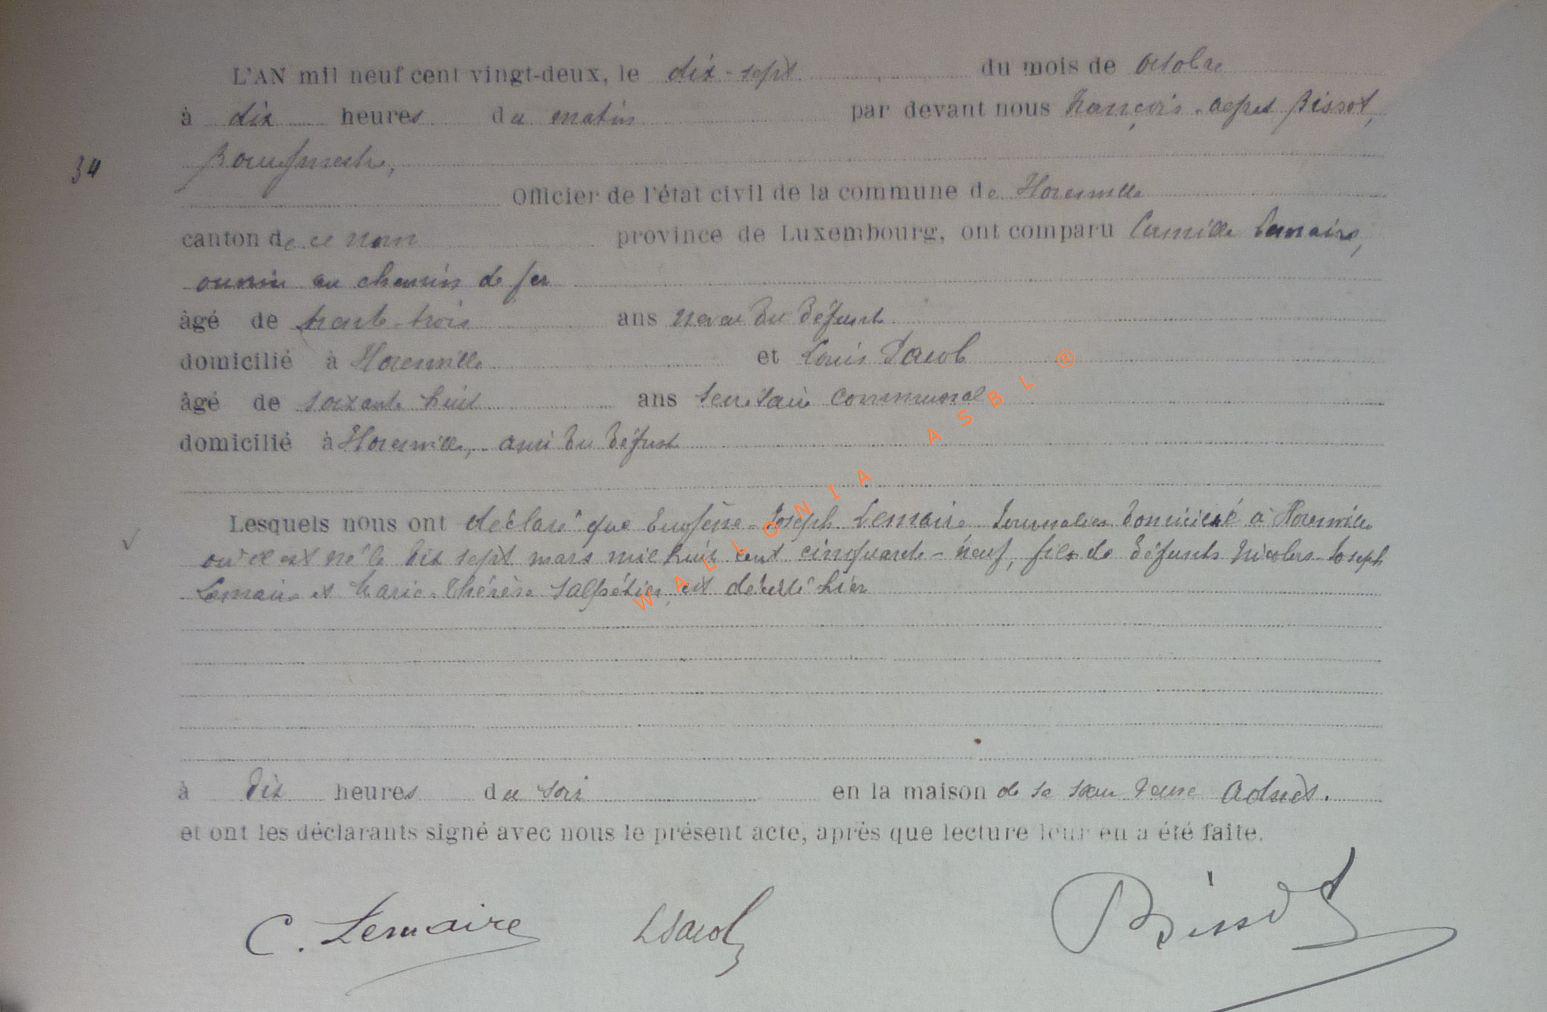 L'AN mil neuf cent vingt-deux, le dix-sept du mois de octobre
à dix heures du matin par devant nous François Bissot,
34
Bourgmestre,
Officier de l'état civil de la commune de Houremille
canton de ce nom province de Luxembourg, ont comparu Camille Lemaire,
ouvrier au chemin de fer
âgé de trente-trois ans neveu du défunt
domicilié à et Louis Jacob
âgé de soixante huit ans secrétaire communal
domicilié à ami du défunt
Lesquels nous ont déclaré que Eugène-Joseph Lemaire Journalier domicilié à
où il est né le dix sept mars mil huit cent cinquante-neuf, fils de défunts Nicolas-Joseph
Lemaire et Marie-Thérèse Salpétier, est décédé hier
à dix heures du soir en la maison de sa sœur veuve
et ont les déclarants signé avec nous le présent acte, après que lecture leur en a été faite.
C. Lemaire LJacob Bissot
WALLONIA ASBL ®